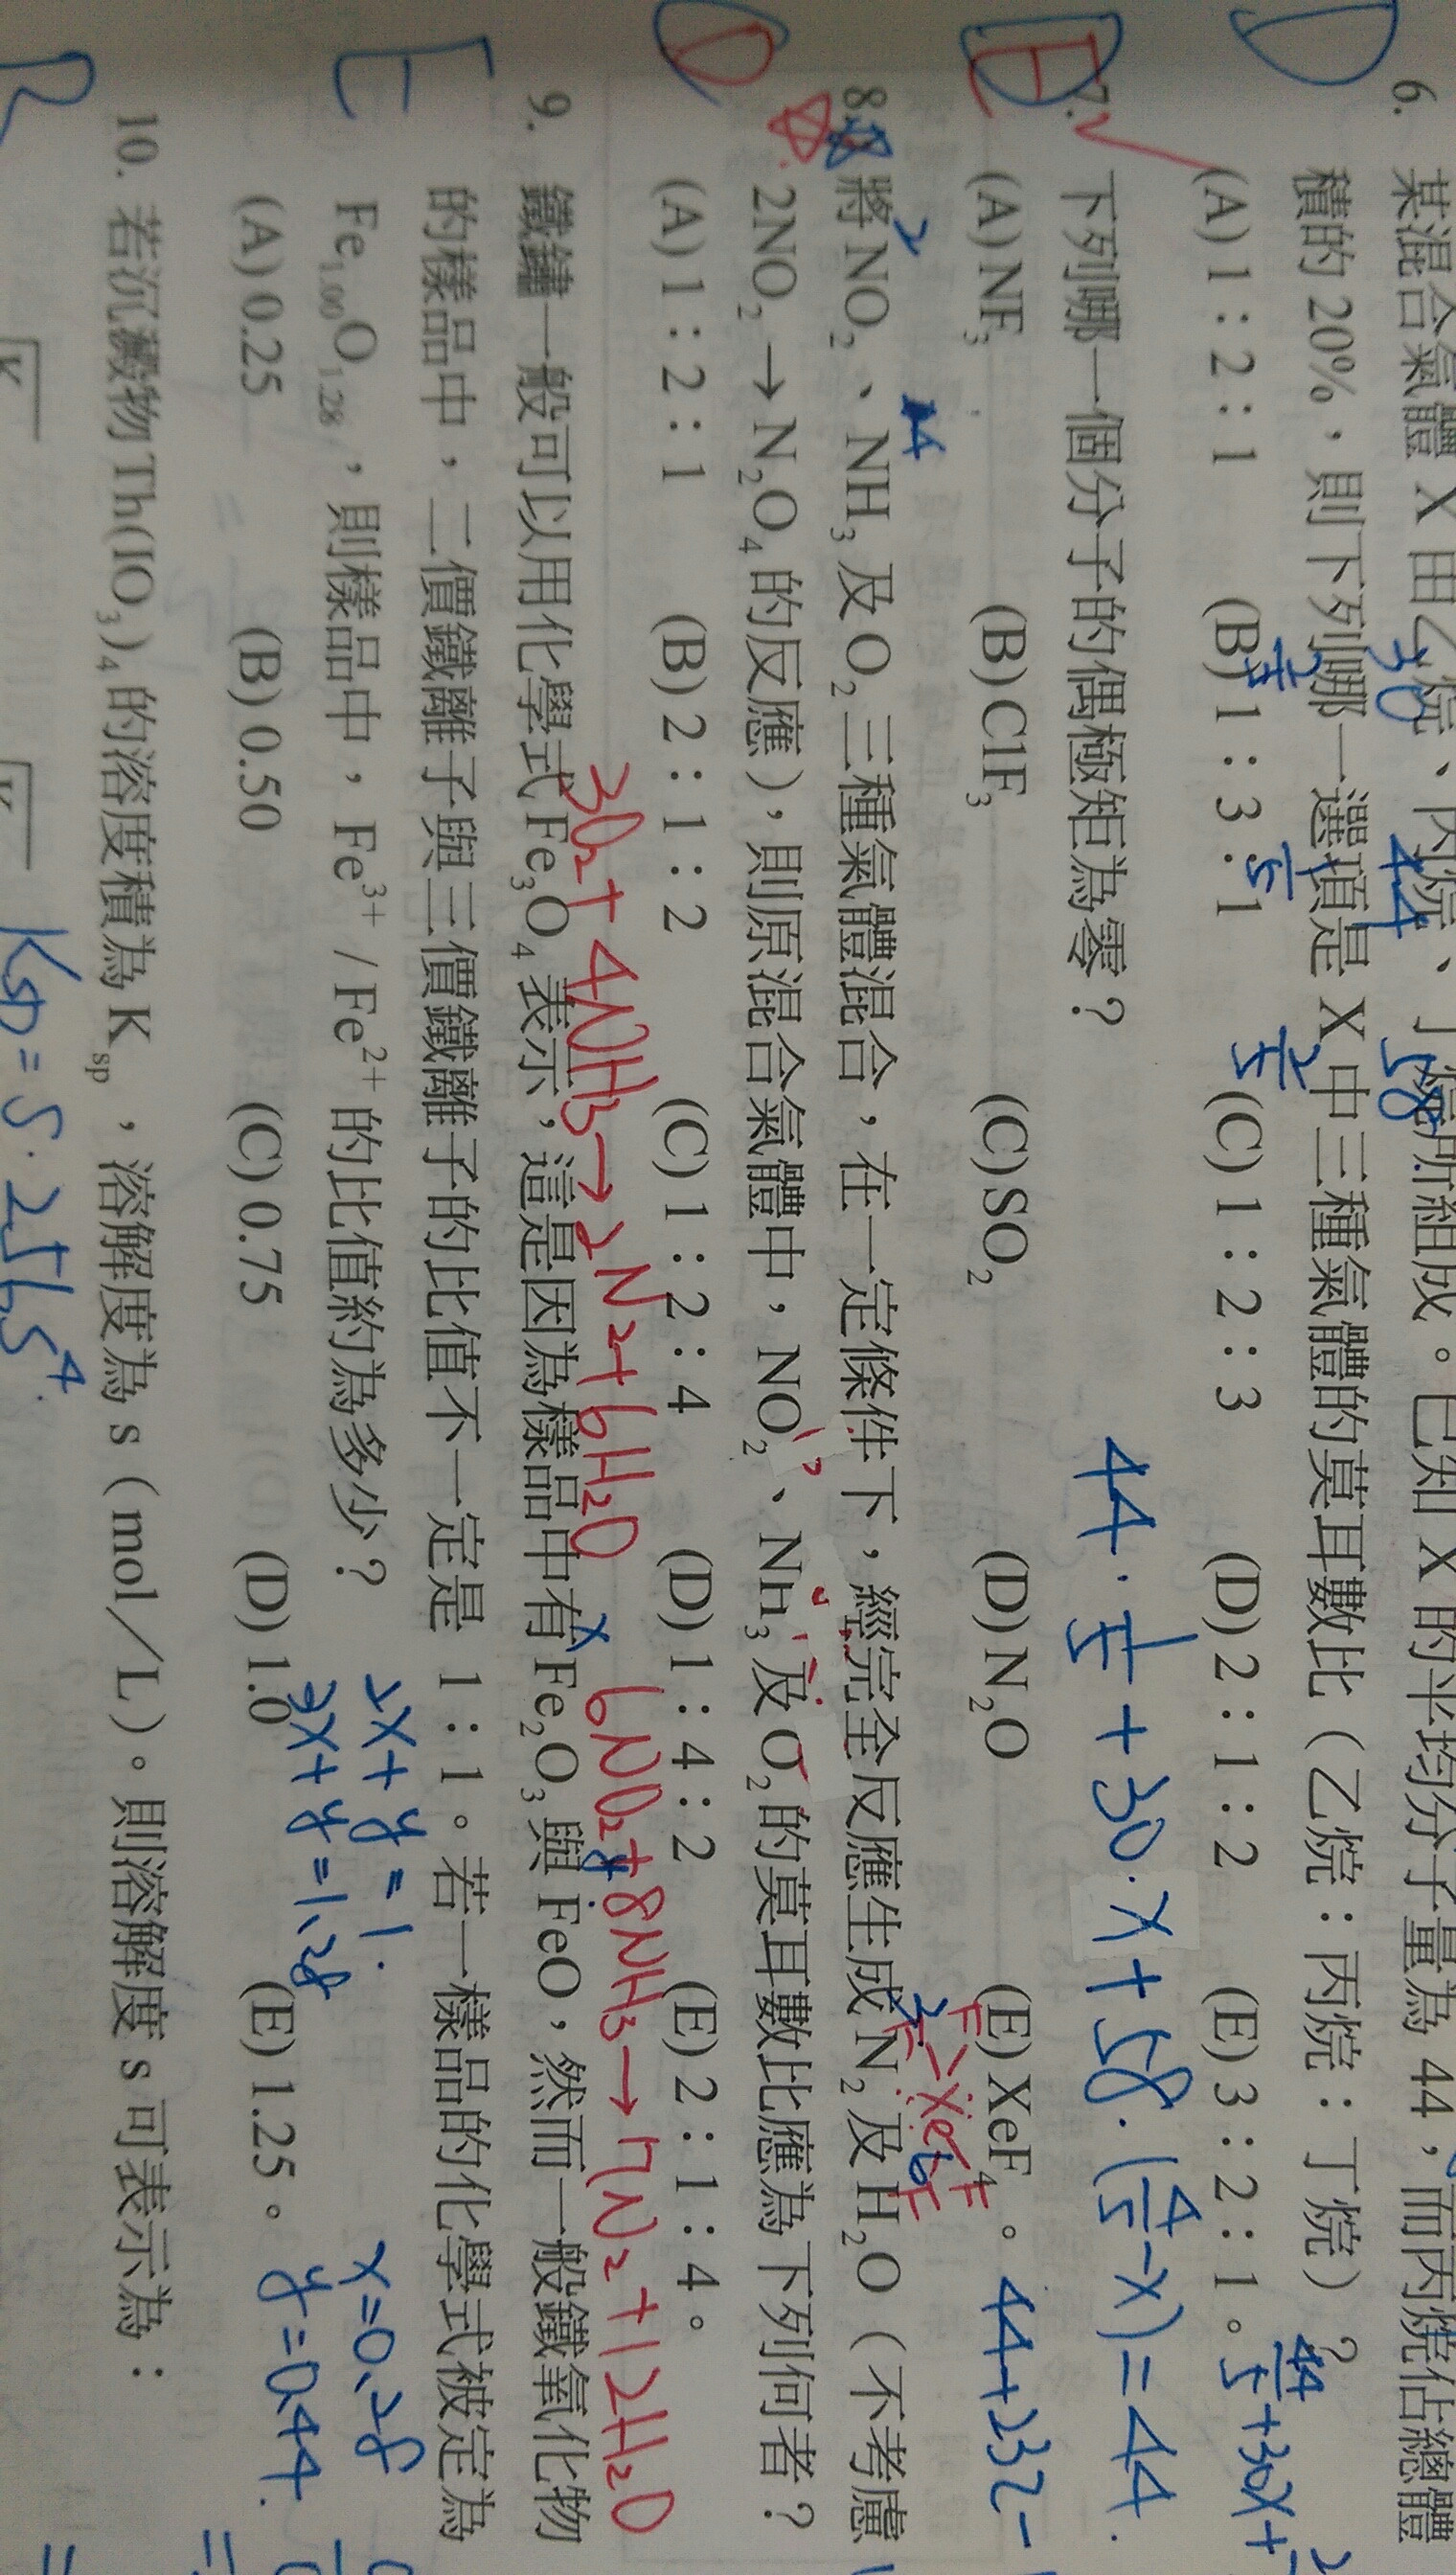 D
6. 某混合氣體 X 由乙烷、丙烷、丁烷所組成。已知 X 的平均分子量為 44,而丙烷佔總體
30 44 58
積的 20%,則下列哪一選項是 X 中三種氣體的莫耳數比(乙烷:丙烷:丁烷)?
(A) 1:2:1 (B) 1:3:1 (C) 1:2:3 (D) 2:1:2 (E) 3:2:1。
E
7. 下列哪一個分子的偶極矩為零?
44·1/5+30·x+58·(4/5-x)=44.
(A) NF₃ (B) ClF₃ (C) SO₂ (D) N₂O (E) XeF₄。
8. 將 NO₂、NH₃ 及 O₂ 三種氣體混合,在一定條件下,經完全反應生成 N₂ 及 H₂O(不考慮
2NO₂→N₂O₄ 的反應),則原混合氣體中,NO₂、Nh₃ 及 O₂ 的莫耳數比應為下列何者?
(A) 1:2:1 (B) 2:1:2 (C) 1:2:4 (D) 1:4:2 (E) 2:1:4。
3O₂+4NH₃→2N₂+6H₂O 6NO₂+8NH₃→7N₂+12H₂O
E
9. 鐵鏽一般可以用化學式 Fe₃O₄ 表示,這是因為樣品中有 Fe₂O₃ 與 FeO,然而一般鐵氧化物
的樣品中,二價鐵離子與三價鐵離子的比值不一定是 1:1。若一樣品的化學式被定為
Fe₁.₀₀O₁.₂₈,則樣品中,Fe³⁺/Fe²⁺ 的比值約為多少?
2x+y=1. x=0.28
3x+y=1.28 y=0.44.
(A) 0.25 (B) 0.50 (C) 0.75 (D) 1.0 (E) 1.25。
10. 若沉澱物 Th(IO₃)₄ 的溶度積為 Ksp,溶解度為 s(mol/L)。則溶解度 s 可表示為:
Ksp=S·256S⁴.